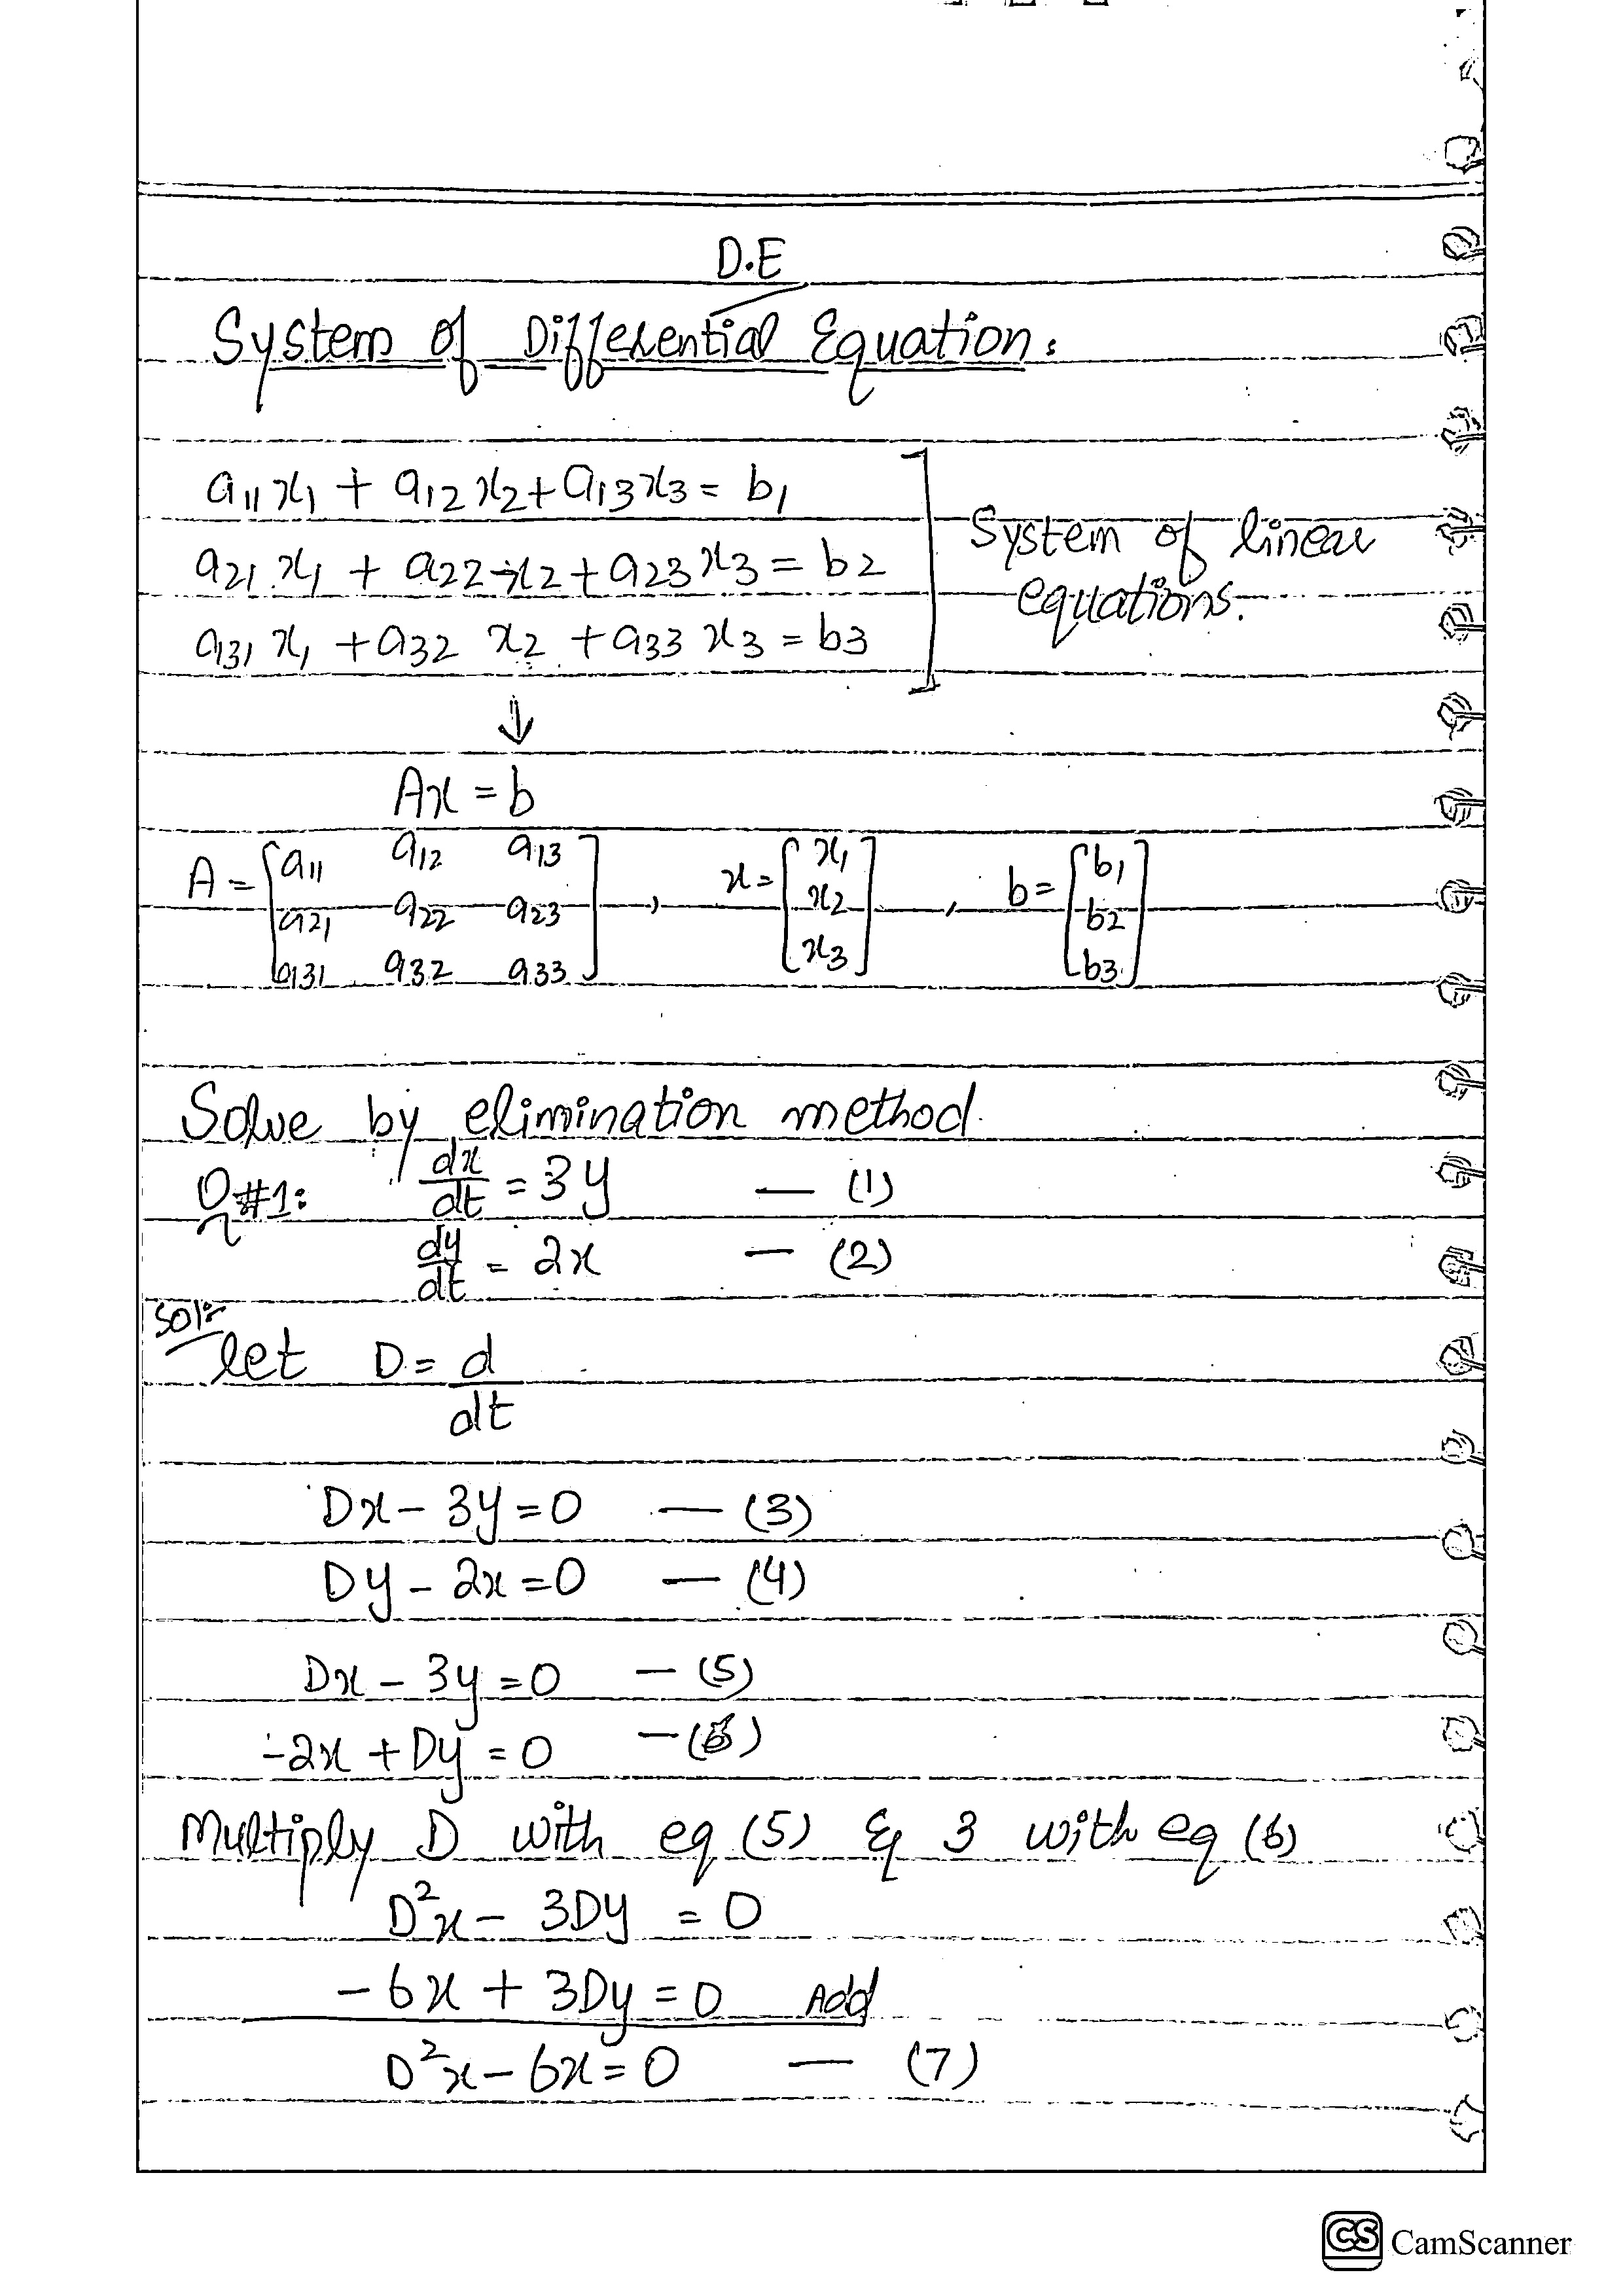 D.E
System of Differential Equation:
a11x1 + a12x2 + a13x3 = b1
a21x1 + a22x2 + a23x3 = b2
a31x1 + a32x2 + a33x3 = b3
System of linear
equations.
↓
Ax = b
A = [a11 a12 a13
a21 a22 a23
a31 a32 a33] , x = [x1
x2
x3] , b = [b1
b2
b3]
Solve by elimination method.
Q#1: dx/dt = 3y — (1)
dy/dt = 2x — (2)
Sol:-
let D = d/dt
Dx - 3y = 0 — (3)
Dy - 2x = 0 — (4)
Dx - 3y = 0 — (5)
-2x + Dy = 0 — (6)
Multiply D with eq (5) & 3 with eq (6)
D²x - 3Dy = 0
-6x + 3Dy = 0 Add
D²x - 6x = 0 — (7)
CS CamScanner